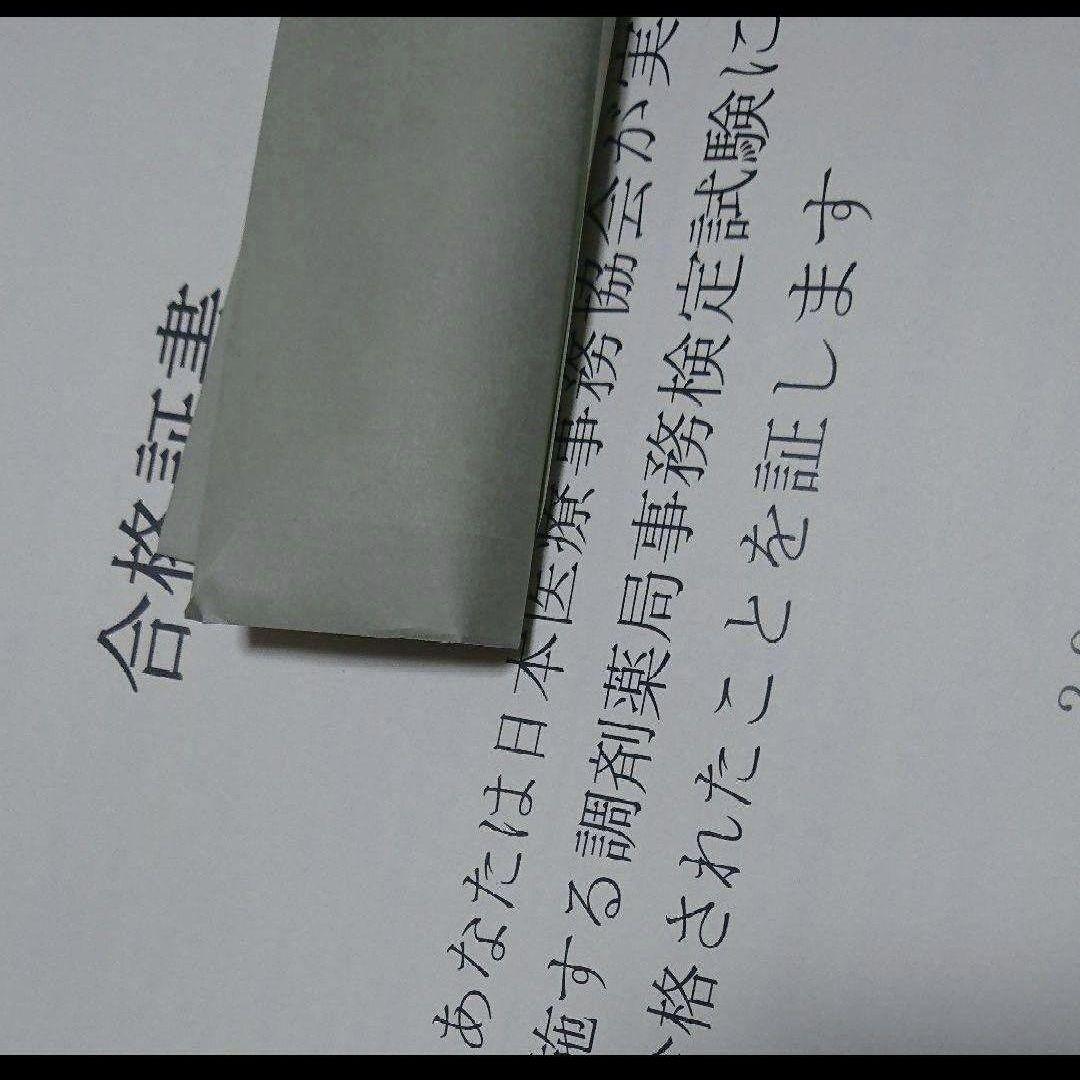 合格証書
あなたは日本医療事務協会が実
施する調剤薬局事務検定試験に
合格されたことを証します